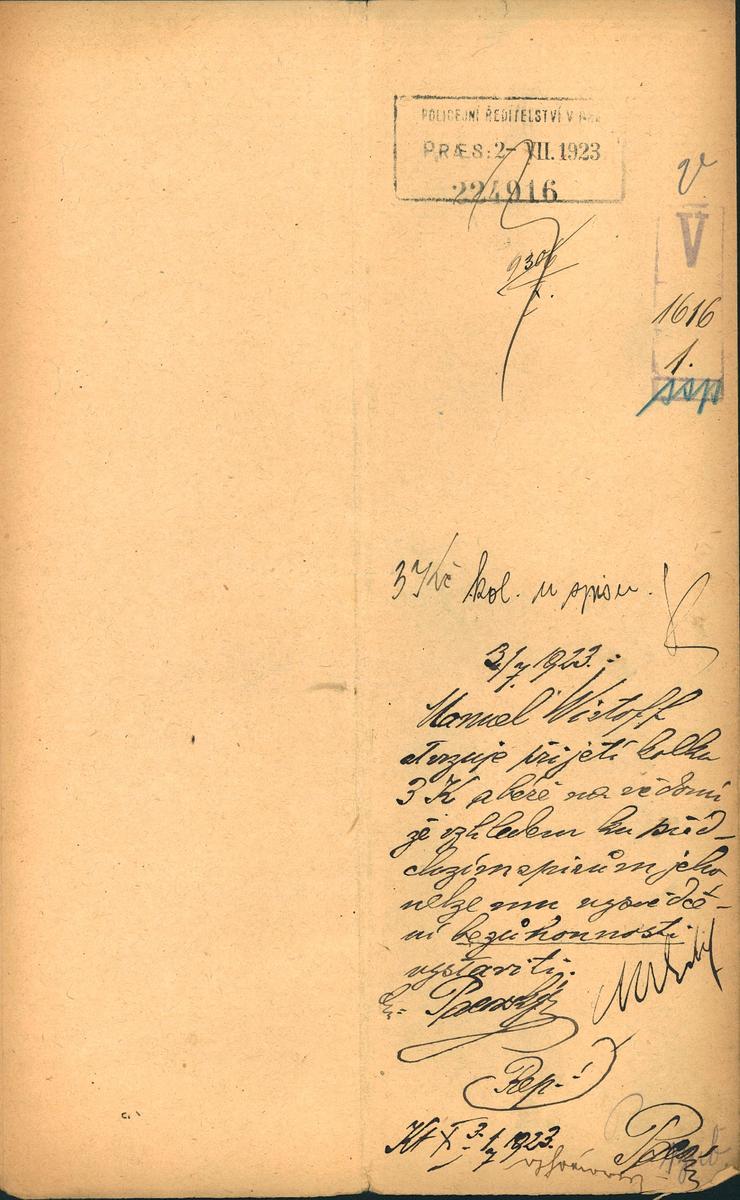 POLICEJNÍ ŘEDITELSTVÍ V
PRÆS: 2- VII. 1923
224916
V
1616
1.
ssp
3 Kč kol. u spisu.
3/7 1923.
Manuel Wistoff
stvrzuje přijetí kolku
3 K a béře na vědomí
že vzhledem ku před-
chozím spisům jeho
nelze mu vysvědče-
ní bezúhonnosti
vystaviti.
Rep.
3/7 1923.